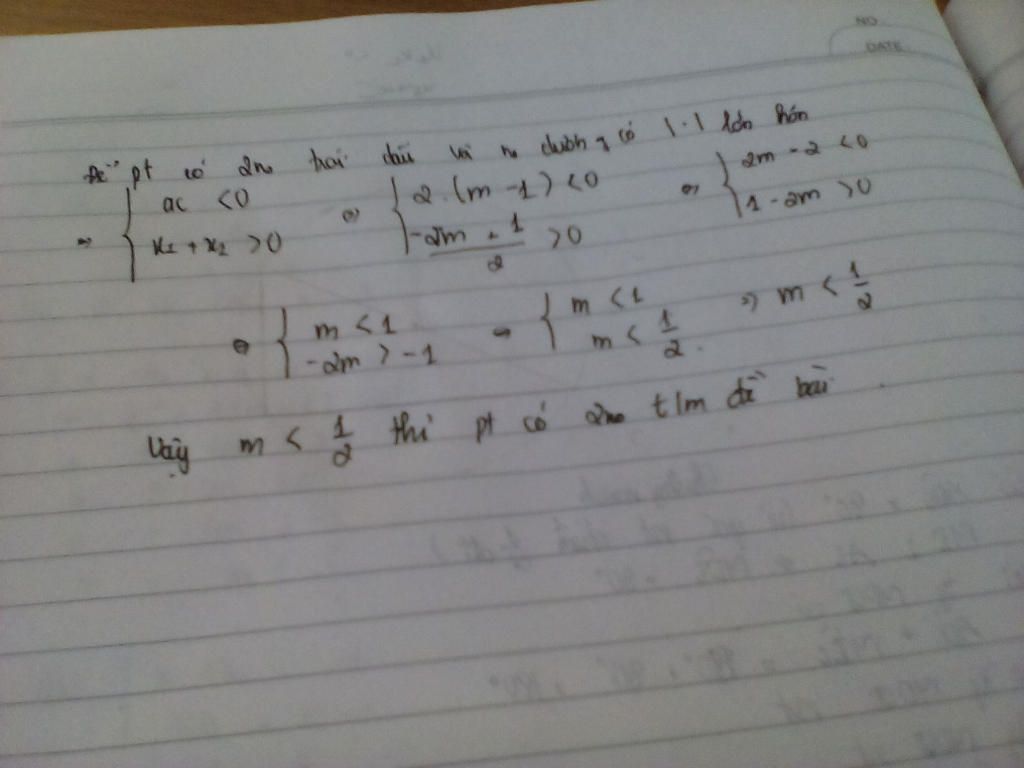 NO
DATE
Để pt có 2no trái dấu và no dương có |.| lớn hơn
⇔ { ac < 0 ⇔ { 2.(m - 1) < 0 ⇔ { 2m - 2 < 0
x₁ + x₂ > 0 -2m + 1 / 2 > 0 1 - 2m > 0
⇔ { m < 1 ⇔ { m < 1 ⇒ m < 1/2
-2m > -1 m < 1/2.
Vậy m < 1/2 thì pt có 2no t/m đề bài.